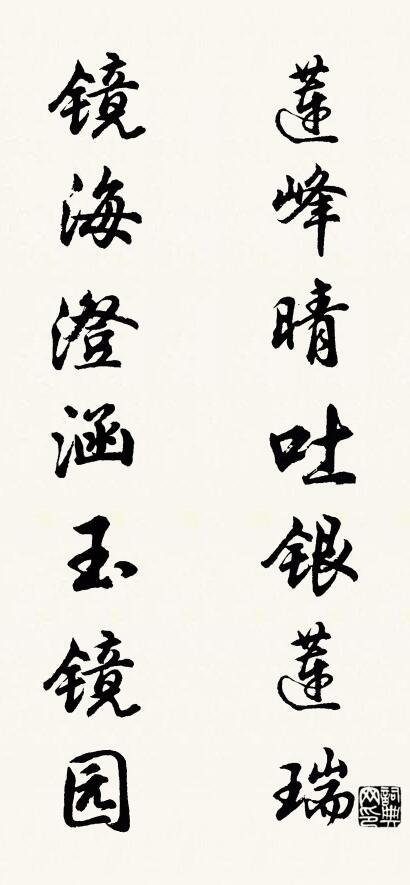 莲峰晴吐银莲瑞
镜海澄涵玉镜园
詞典网印